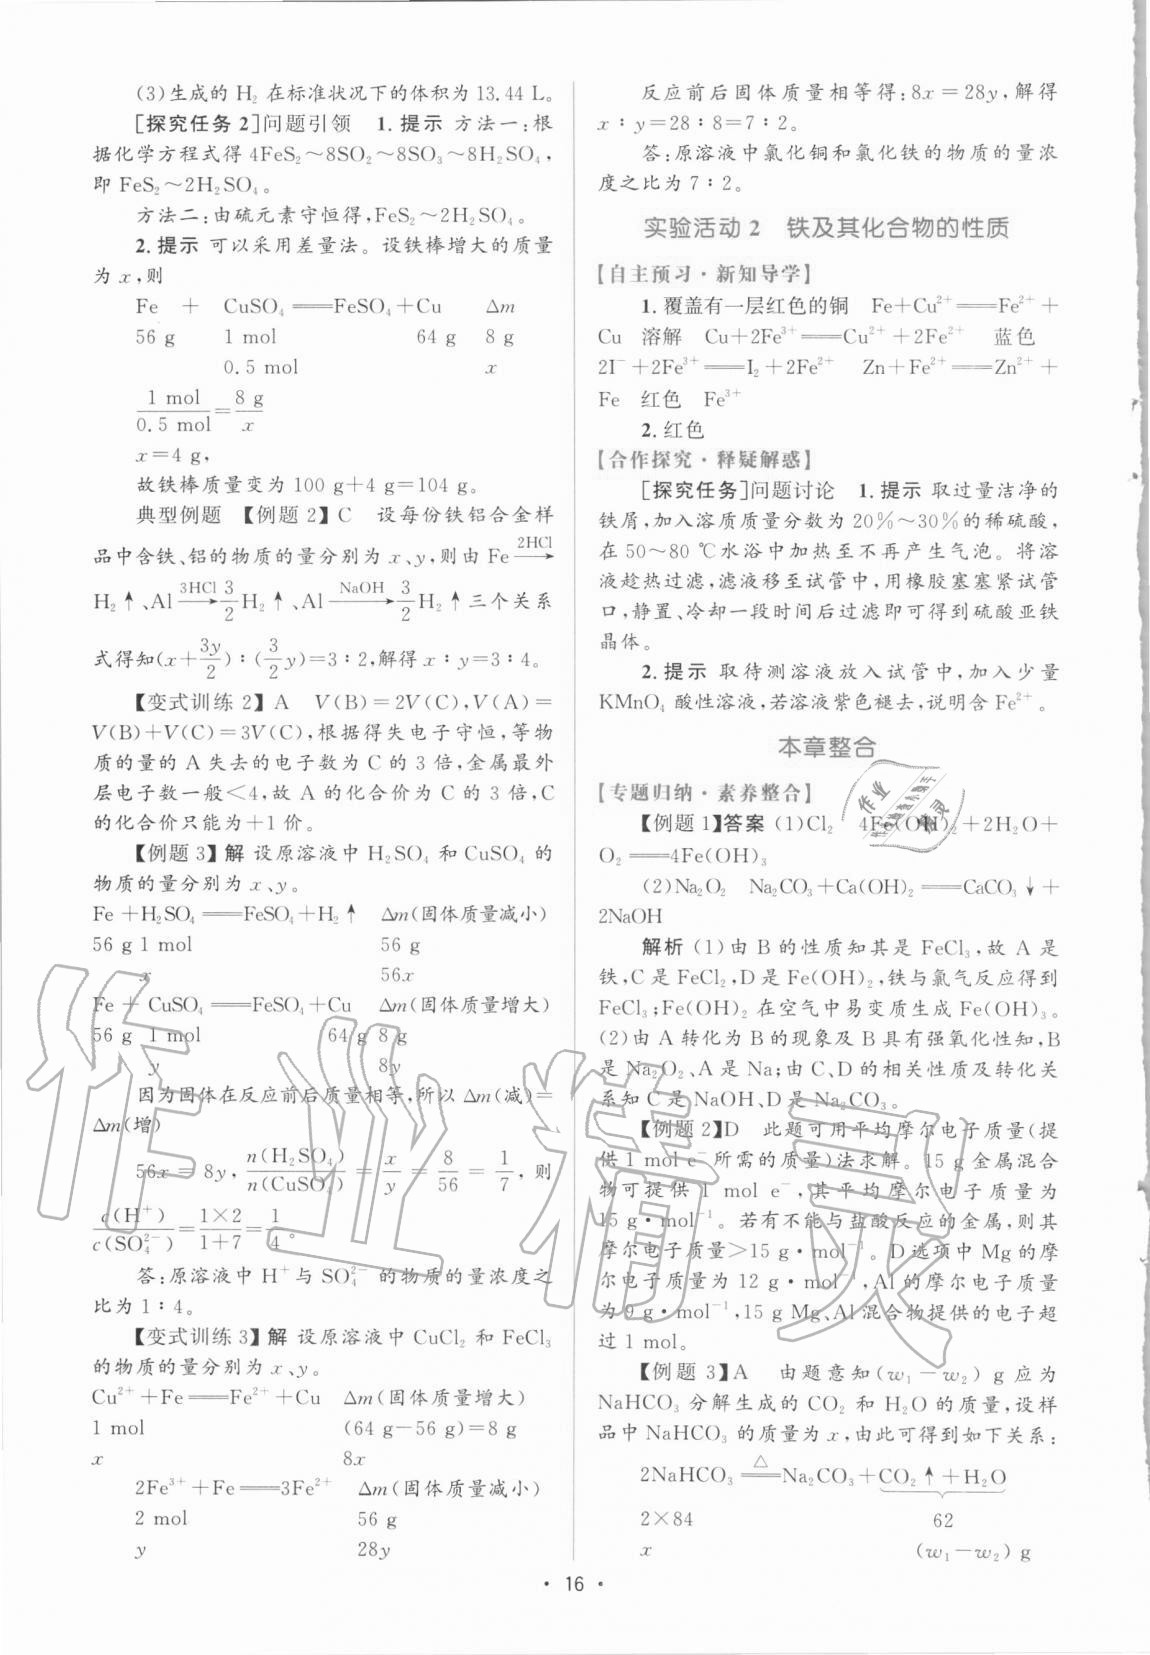 (3)生成的 H₂ 在标准状况下的体积为 13.44 L。
[探究任务2]问题引领 1.提示 方法一:根
据化学方程式得 4FeS₂～8SO₂～8SO₃～8H₂SO₄,
即 FeS₂～2H₂SO₄。
方法二:由硫元素守恒得,FeS₂～2H₂SO₄。
2.提示 可以采用差量法。设铁棒增大的质量
为 x,则
Fe + CuSO₄══FeSO₄+Cu Δm
56 g 1 mol 64 g 8 g
0.5 mol x
1 mol/0.5 mol=8 g/x
x=4 g,
故铁棒质量变为 100 g+4 g=104 g。
典型例题 【例题2】C 设每份铁铝合金样
品中含铁、铝的物质的量分别为 x、y,则由 Fe—2HCl→
H₂↑、Al—3HCl→3/2H₂↑、Al—NaOH→3/2H₂↑三个关系
式得知(x+3y/2)∶(3/2y)=3∶2,解得 x∶y=3∶4。
【变式训练2】A V(B)=2V(C),V(A)=
V(B)+V(C)=3V(C),根据得失电子守恒,等物
质的量的 A 失去的电子数为 C 的 3 倍,金属最外
层电子数一般<4,故 A 的化合价为 C 的 3 倍,C
的化合价只能为+1 价。
【例题3】解 设原溶液中 H₂SO₄ 和 CuSO₄ 的
物质的量分别为 x、y。
Fe+H₂SO₄══FeSO₄+H₂↑ Δm(固体质量减小)
56 g 1 mol 56 g
x 56x
Fe + CuSO₄══FeSO₄+Cu Δm(固体质量增大)
56 g 1 mol 64 g 8 g
y 8y
因为固体在反应前后质量相等,所以 Δm(减)=
Δm(增)
56x=8y,n(H₂SO₄)/n(CuSO₄)=x/y=8/56=1/7,则
c(H⁺)/c(SO₄²⁻)=1×2/1+7=1/4。
答:原溶液中 H⁺与 SO₄²⁻ 的物质的量浓度之
比为 1∶4。
【变式训练3】解 设原溶液中 CuCl₂ 和 FeCl₃
的物质的量分别为 x、y。
Cu²⁺+Fe══Fe²⁺+Cu Δm(固体质量增大)
1 mol (64 g−56 g)=8 g
x 8x
2Fe³⁺+Fe══3Fe²⁺ Δm(固体质量减小)
2 mol 56 g
y 28y
反应前后固体质量相等得:8x=28y,解得
x∶y=28∶8=7∶2。
答:原溶液中氯化铜和氯化铁的物质的量浓
度之比为 7∶2。
实验活动2 铁及其化合物的性质
【自主预习·新知导学】
1.覆盖有一层红色的铜 Fe+Cu²⁺══Fe²⁺+
Cu 溶解 Cu+2Fe³⁺══Cu²⁺+2Fe²⁺ 蓝色
2I⁻+2Fe³⁺══I₂+2Fe²⁺ Zn+Fe²⁺══Zn²⁺+
Fe 红色 Fe³⁺
2.红色
【合作探究·释疑解惑】
[探究任务]问题讨论 1.提示 取过量洁净的
铁屑,加入溶质质量分数为 20%～30%的稀硫酸,
在 50～80 ℃水浴中加热至不再产生气泡。将溶
液趁热过滤,滤液移至试管中,用橡胶塞塞紧试管
口,静置、冷却一段时间后过滤即可得到硫酸亚铁
晶体。
2.提示 取待测溶液放入试管中,加入少量
KMnO₄ 酸性溶液,若溶液紫色褪去,说明含 Fe²⁺。
本章整合
【专题归纳·素养整合】
【例题1】答案 (1)Cl₂ 4Fe(OH)₂+2H₂O+
O₂══4Fe(OH)₃
(2)Na₂O₂ Na₂CO₃+Ca(OH)₂══CaCO₃↓+
2NaOH
解析 (1)由 B 的性质知其是 FeCl₃,故 A 是
铁,C 是 FeCl₂,D 是 Fe(OH)₂,铁与氯气反应得到
FeCl₃;Fe(OH)₂ 在空气中易变质生成 Fe(OH)₃。
(2)由 A 转化为 B 的现象及 B 具有强氧化性知,B
是 Na₂O₂、A 是 Na;由 C、D 的相关性质及转化关
系知 C 是 NaOH、D 是 Na₂CO₃。
【例题2】D 此题可用平均摩尔电子质量(提
供 1 mol e⁻所需的质量)法求解。15 g 金属混合
物可提供 1 mol e⁻,其平均摩尔电子质量为
15 g·mol⁻¹。若有不能与盐酸反应的金属,则其
摩尔电子质量>15 g·mol⁻¹。D 选项中 Mg 的摩
尔电子质量为 12 g·mol⁻¹,Al 的摩尔电子质量
为 9 g·mol⁻¹,15 g Mg、Al 混合物提供的电子超
过 1 mol。
【例题3】A 由题意知(w₁−w₂) g 应为
NaHCO₃ 分解生成的 CO₂ 和 H₂O 的质量,设样
品中 NaHCO₃ 的质量为 x,由此可得到如下关系:
2NaHCO₃══(△)Na₂CO₃+CO₂↑+H₂O
2×84 62
x (w₁−w₂) g
·16·
作业精灵